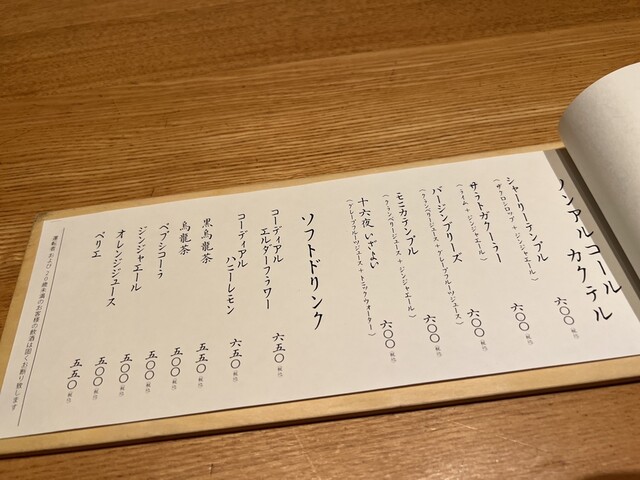 ノンアルコール
カクテル
シャーリーテンプル 六〇〇税抜
（ザクロシロップ＋ジンジャエール）
サラトガクーラー 六〇〇税抜
（ライム＋ジンジャエール）
バージンブリーズ 六〇〇税抜
（クランベリージュース＋グレープフルーツジュース）
モニカテンプル 六〇〇税抜
（クランベリージュース＋ジンジャエール）
十六夜 いざよい 六〇〇税抜
（グレープフルーツジュース＋トニックウォーター）
ソフトドリンク
コーディアル
エルダーフラワー 六五〇税抜
コーディアル
ハニーレモン 六五〇税抜
黒烏龍茶 五五〇税抜
烏龍茶 五〇〇税抜
ペプシコーラ 五〇〇税抜
ジンジャエール 五〇〇税抜
オレンジジュース 五〇〇税抜
ペリエ 五五〇税抜
運転者および20歳未満のお客様の飲酒は固くお断り致します